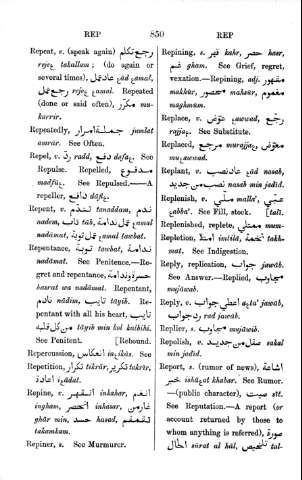 REP 850 REP
Repeat, v. (speak again) رجع تكلم
rejє takallam; (do again or
several times), عاد عمل єād єamal,
رجع عمل rejє єamal. Repeated
(done or said often), مكرّر mu-
karrir.
Repeatedly, جملة امرار jumlat
amrār. See Often.
Repel, v. ردّ radd, دفع dafaє. See
Repulse. Repelled, مدفوع
madfūє. See Repulsed.—A
repeller, دافع dāfiє.
Repent, v. تندّم tanaddam, ندم
nadam, تاب tāb, عمل ندامة єamal
nadāmat, عمل توبة єamal taubat.
Repentance, توبة taubat, ندامة
nadāmat. See Penitence.—Re-
gret and repentance, حسرة وندامة
hasrat wa nadāmat. Repentant,
نادم nādim, تايب tāyib. Re-
pentant with all his heart, تايب
من كل قلبه tāyib min kul kulbihi.
See Penitent. [Rebound.
Repercussion, انعكاس inєikās. See
Repetition, تكرير takrīr, تكرار tikrār,
اعادة iєādat.
Repine, v. انقهر inkahar, انغم
ingham, انحصر inhasar, غار من
ghār min, حسد hasad,
takamkam.
Repiner, s. See Murmurer.
Repining, s. قهر kahr, حصر hasr,
غم gham. See Grief, regret,
vexation.—Repining, adj. مقهور
makhūr, محصور mahsūr, مغموم
maghmūm.
Replace, v. عوّض єawwad, رجّع
rajjaє. See Substitute.
Replaced, مرجع murajjaє, معوّض
muєawwad.
Replant, v. عاد نصب єād nasab,
نصب من جديد nasab min jadīd.
Replenish, v. ملى malla', عبّى
єabba'. See Fill, stock. [talī.
Replenished, replete, ممتلي mum-
Repletion, امتلا imtilā, تخمة takh-
mat. See Indigestion.
Reply, replication, جواب jawāb.
See Answer.—Replied, مجاوب
mujāwab.
Reply, v. جاوب jāwab, اعطى جواب aєta' jawāb,
رد جواب rad jawāb.
Replier, s. مجاوب mujāwib.
Repolish, v. صقل من جديد sakal
min jadīd.
Report, s. (rumor of news), اشاعة
ishāєat, خبر khabar. See Rumor.
—(public character), صيت sīt.
See Reputation.—A report (or
account returned by those to
whom anything is referred), صورة
الحال sūrat al hāl, تلخيص tal-